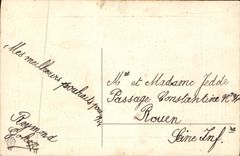 Mes meilleurs souhaits
Raymond
Mr et Madame Jedde
Passage Constantine
Rouen
Seine Infre